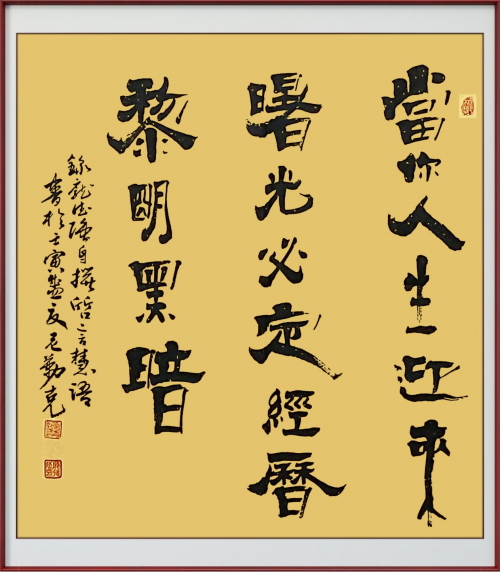 當你人生迎來
曙光必定經曆
黎明黑暗
錄龍自撰哲言慧語
書於壬寅盛夏尼勒克